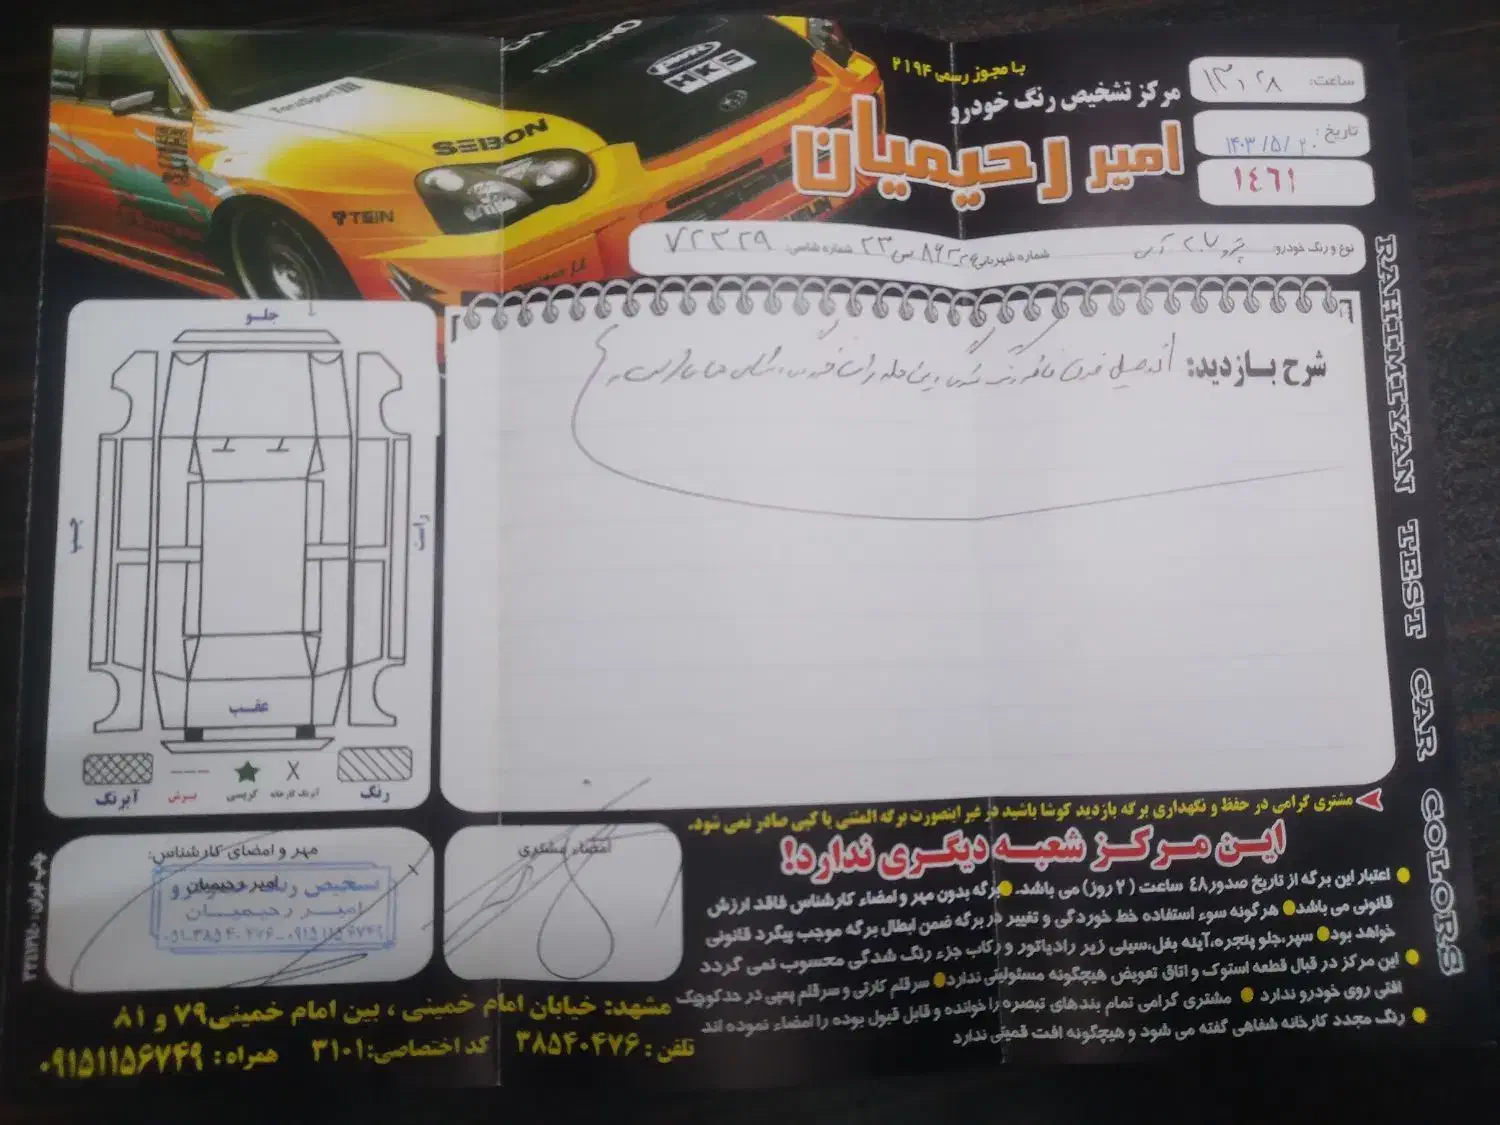 با مجوز رسمی ۲۱۹۴
مرکز تشخیص رنگ خودرو
امیر رحیمیان
ساعت: ۱۳،۲۸
تاریخ: ۱۴۰۳/۵/۲۰
۱۴۶۱
نوع و رنگ خودرو: پژو ۲۰۷ آبی
شماره شهربانی:
شماره شاسی: ۷۲۳۲۹
SEBON
TEIN
HKS
شرح بازدید:
جلو
چپ
راست
عقب
رنگ
آبرنگ کارخانه
گریسی
برش
آبرنگ
RAHIMIYAN TEST CAR COLORS
مشتری گرامی در حفظ و نگهداری برگه بازدید کوشا باشید در غیر اینصورت برگه المثنی یا کپی صادر نمی شود.
این مرکز شعبه دیگری ندارد!
اعتبار این برگه از تاریخ صدور ۴۸ ساعت (۲ روز) می باشد. برگه بدون مهر و امضاء کارشناس فاقد ارزش
قانونی می باشد هرگونه سوء استفاده خط خوردگی و تغییر در برگه ضمن ابطال برگه موجب پیگرد قانونی
خواهد بود سپر،جلو پنجره،آینه بغل،سینی زیر رادیاتور و رکاب جزء رنگ شدگی محسوب نمی گردد
این مرکز در قبال قطعه استوک و اتاق تعویض هیچگونه مسئولیتی ندارد سرقلم کارتی و سرقلم پمپی در حد کوچک
افتی روی خودرو ندارد مشتری گرامی تمام بندهای تبصره را خوانده و قابل قبول بوده را امضاء نموده اند
رنگ مجدد کارخانه شفاهی گفته می شود و هیچگونه افت قمیتی ندارد
امضاء مشتری
مهر و امضای کارشناس:
امیر رحیمیان
تشخیص رنگ خودرو
امیر رحیمیان
۰۵۱-۳۸۵۴۰۴۷۶-۰۹۱۵۱۱۵۶۷۴۹
مشهد: خیابان امام خمینی ، بین امام خمینی ۷۹ و ۸۱
تلفن: ۳۸۵۴۰۴۷۶ کد اختصاصی: ۳۱۰۱ همراه: ۰۹۱۵۱۱۵۶۷۴۹